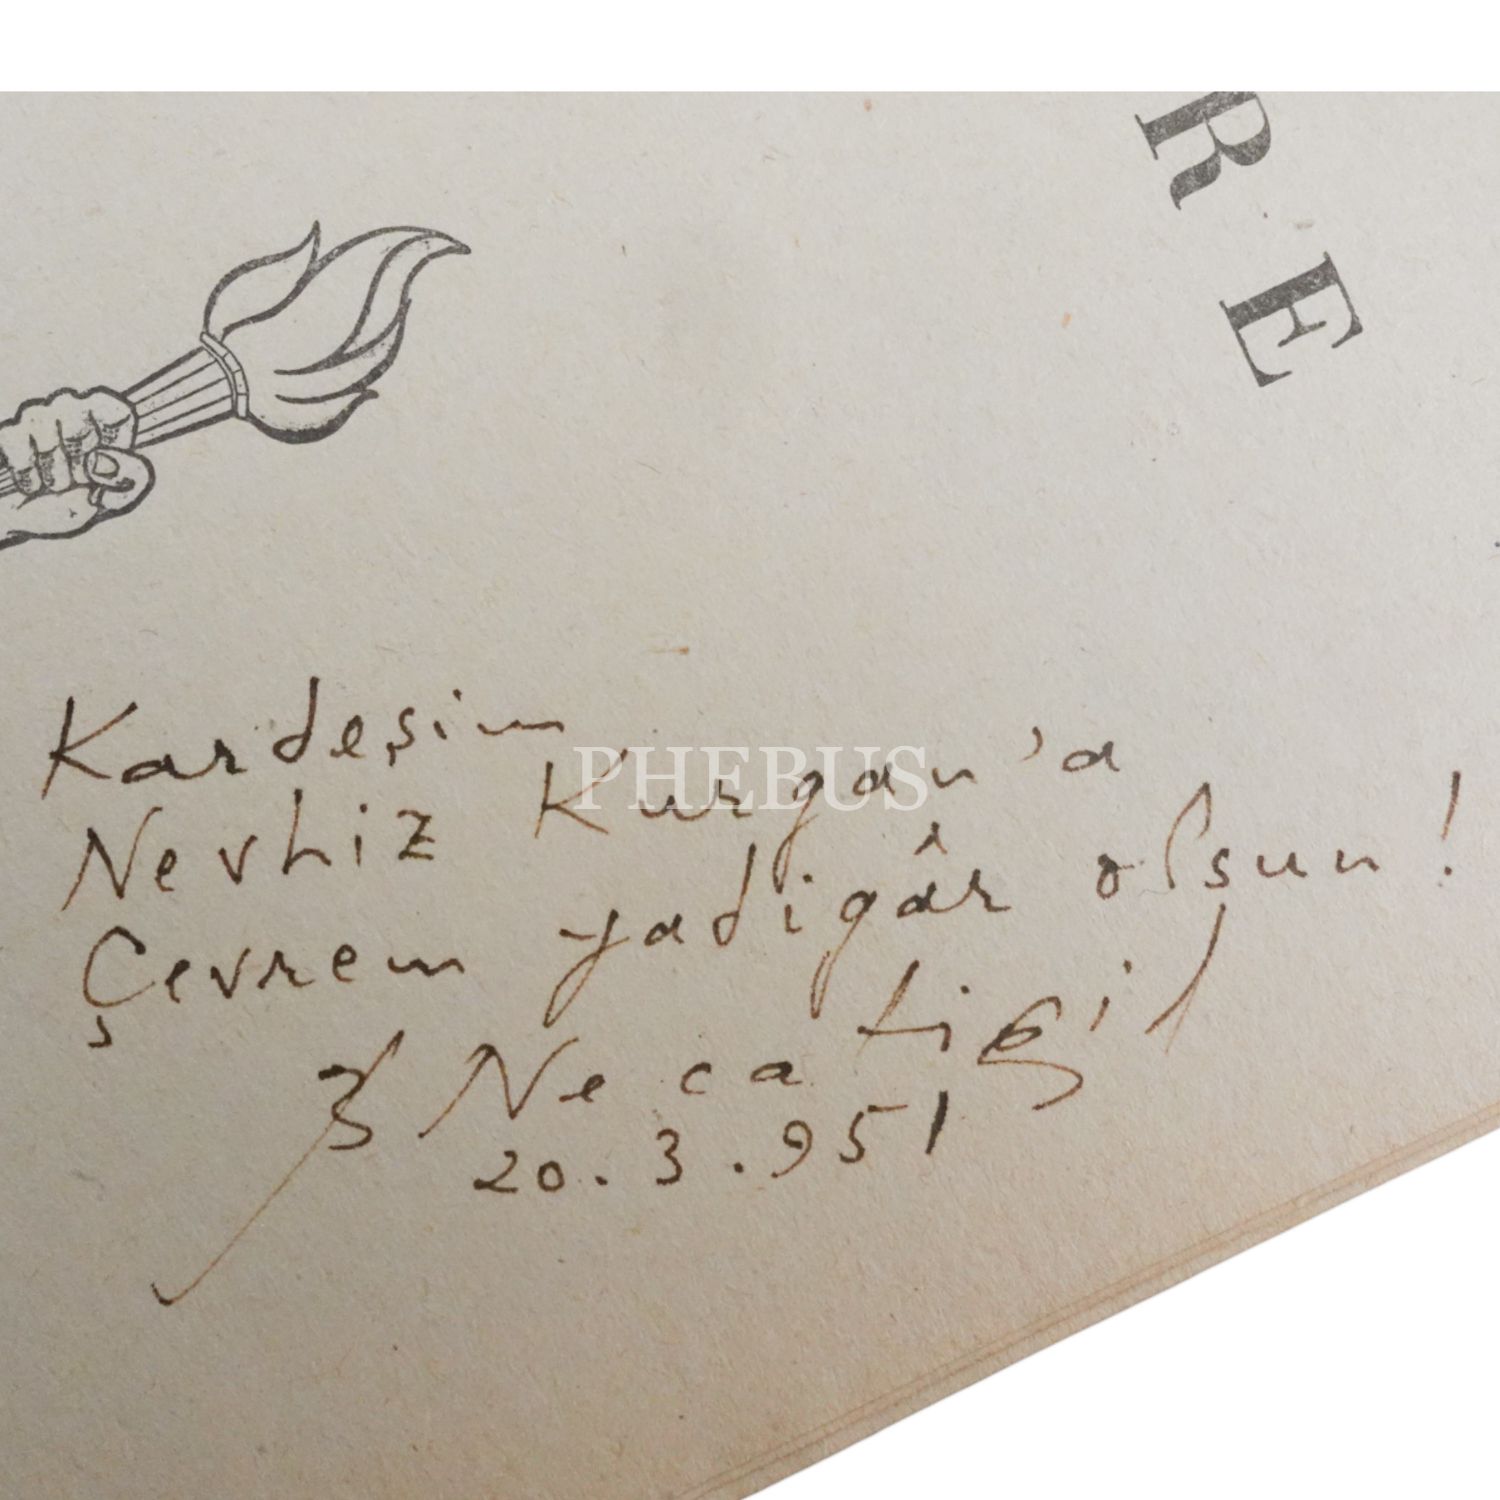 RE
Kardeşim
Nevhiz Kurgan'a
Çevrem yadigâr olsun!
B Necatigil
20.3.951
PHEBUS